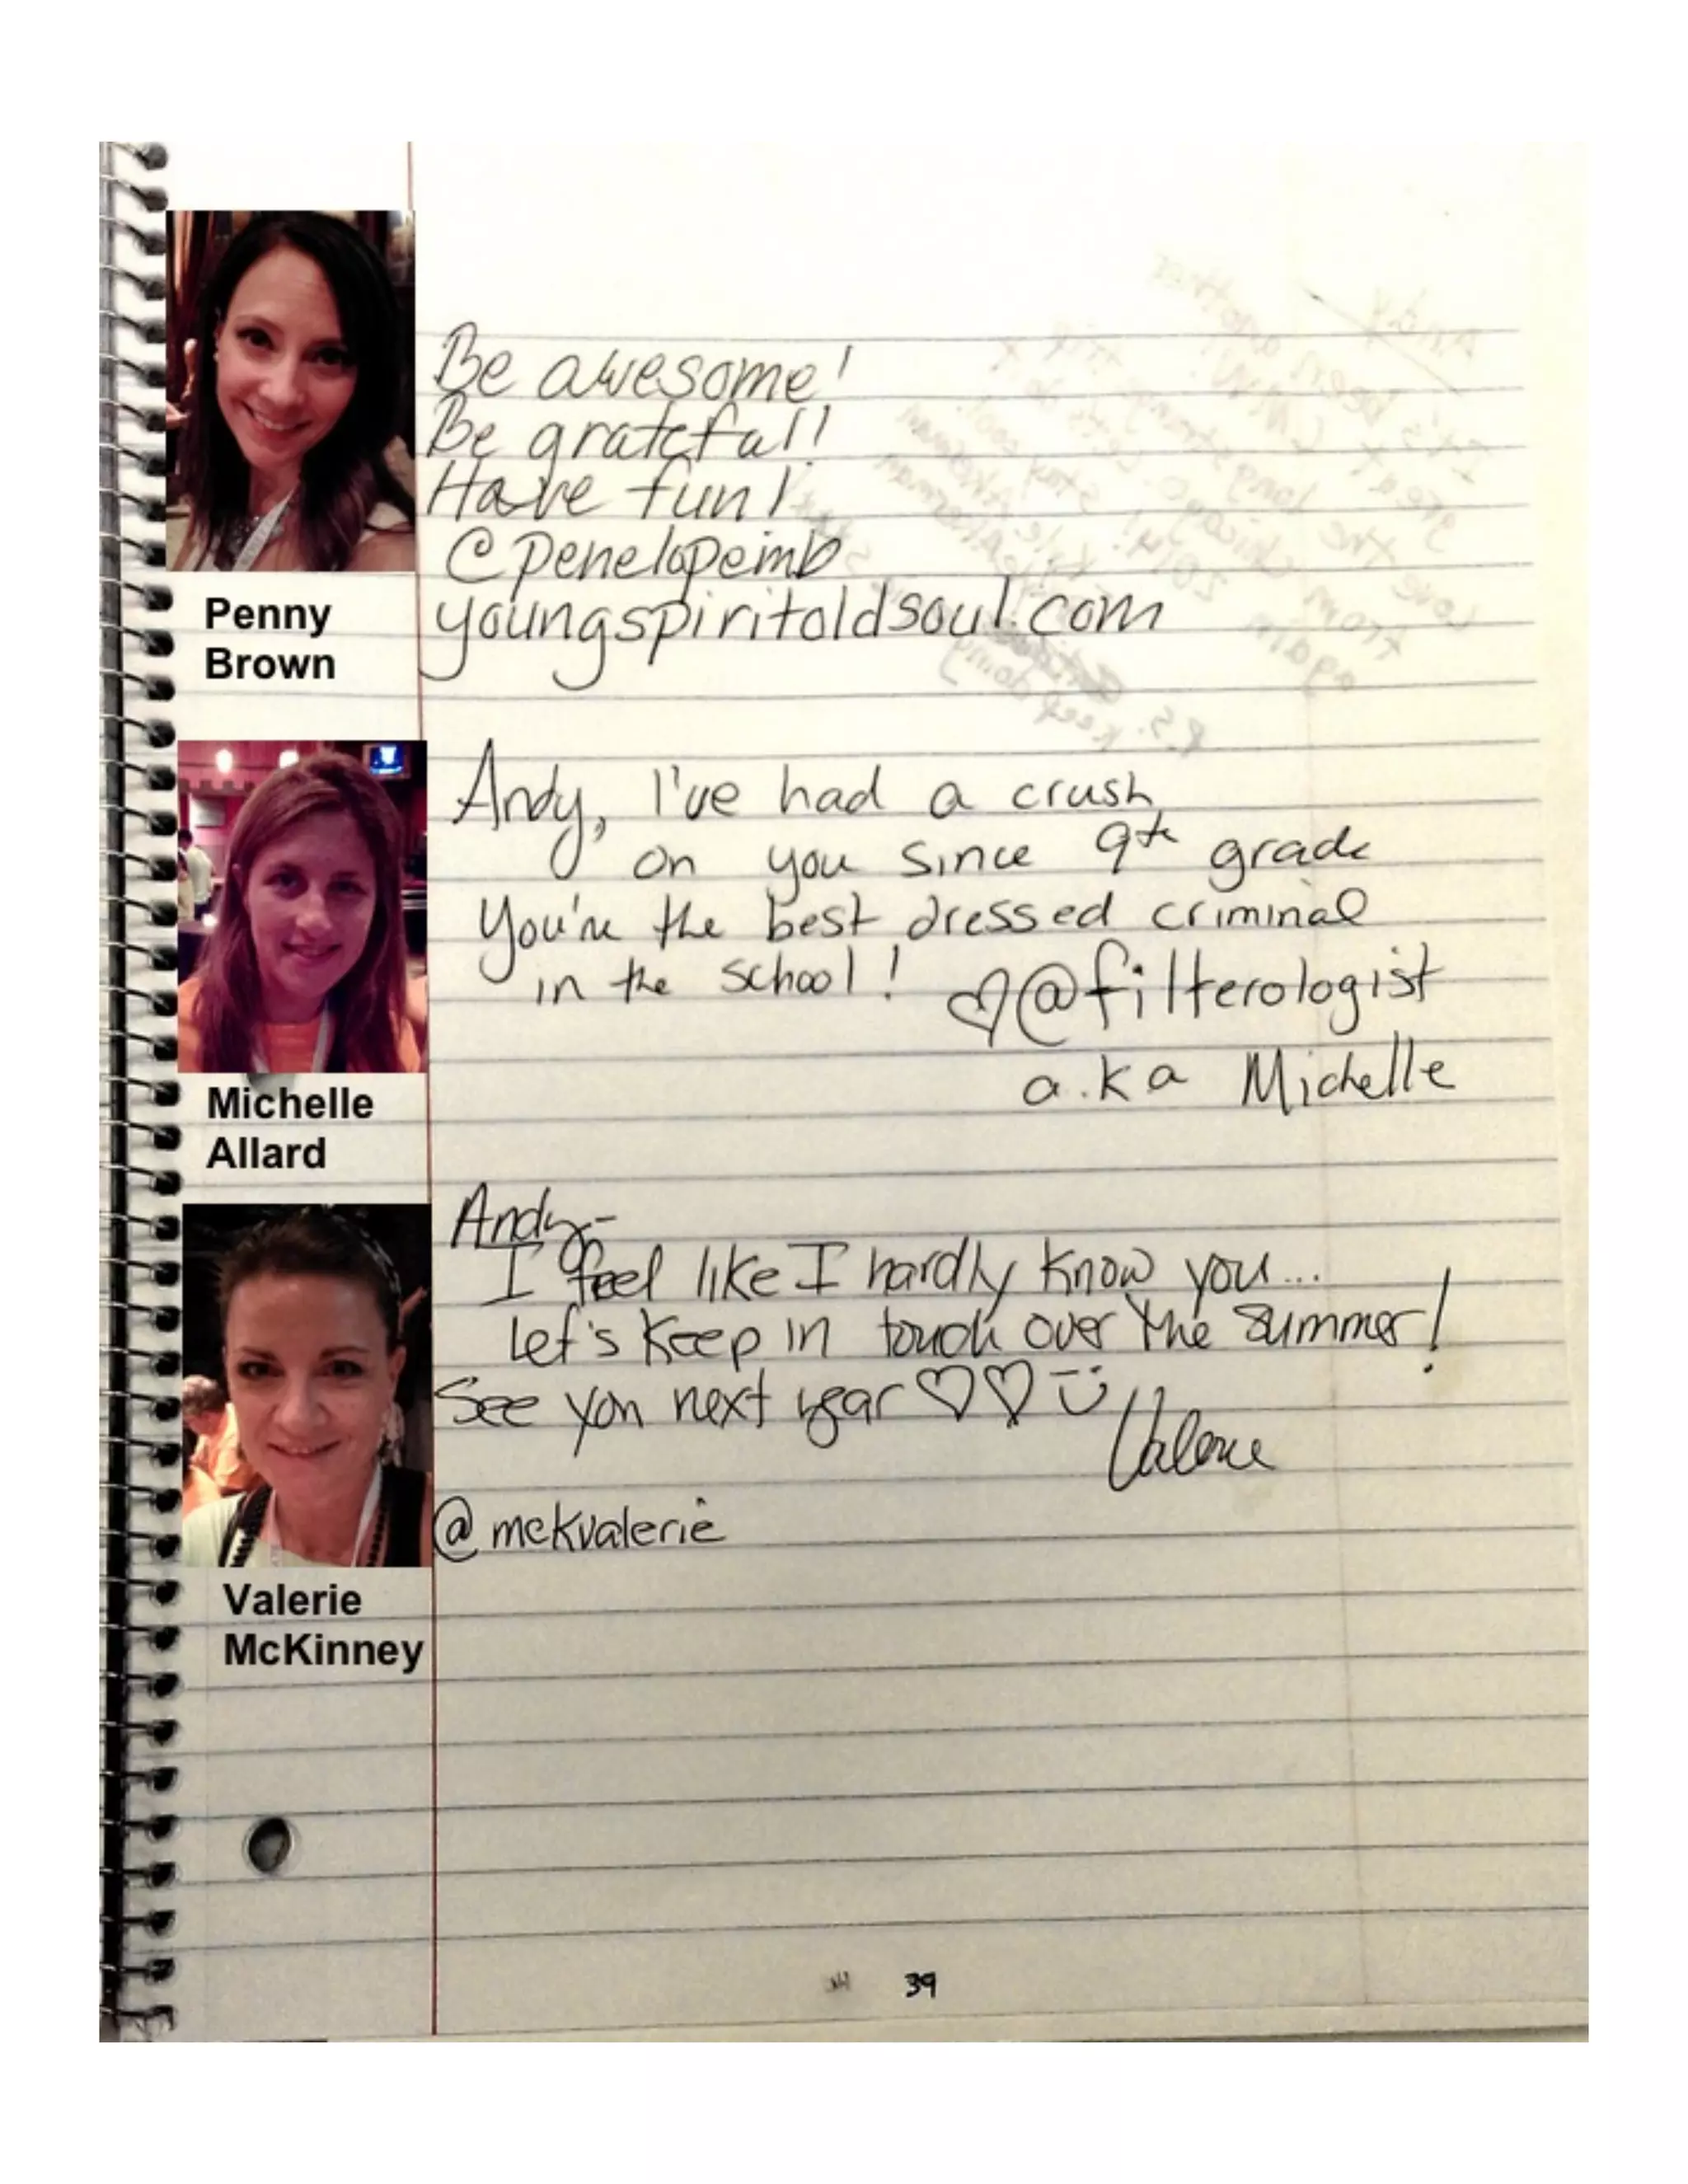 Be awesome!
Be grateful!
Have fun!
@penelopeimb
youngspiritoldsoul.com
Penny
Brown
Andy, I've had a crush
on you since 9th grade
You're the best dressed criminal
in the school! ♡@filterologist
a.k a Michelle
Michelle
Allard
Andy-
I feel like I hardly know you...
Let's keep in touch over the summer!
See you next year ♡♡ Ü
Valerie
@mckvalerie
Valerie
McKinney
39